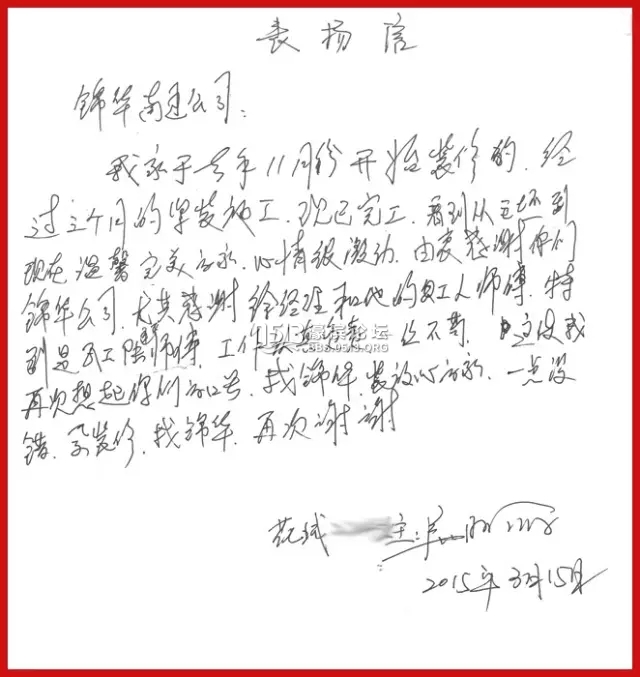 表扬信
锦华南通公司：
我家于去年11月份开始装修的，经
过三个月的紧装施工，现已完工，看到从毛坯到
现在温馨完美的家，心情很激动，由衷感谢你们
锦华公司，尤其感谢徐经理和他的职工人师傅，特
别是瓦工陈师傅，工作认，但不，这使我
再次想起你们的口号，找锦华，装放心的家，一点没
错，要装修，找锦华，再次谢谢
0513濠滨论坛
BBS.0513.ORG
花城 主
2015年3月15日